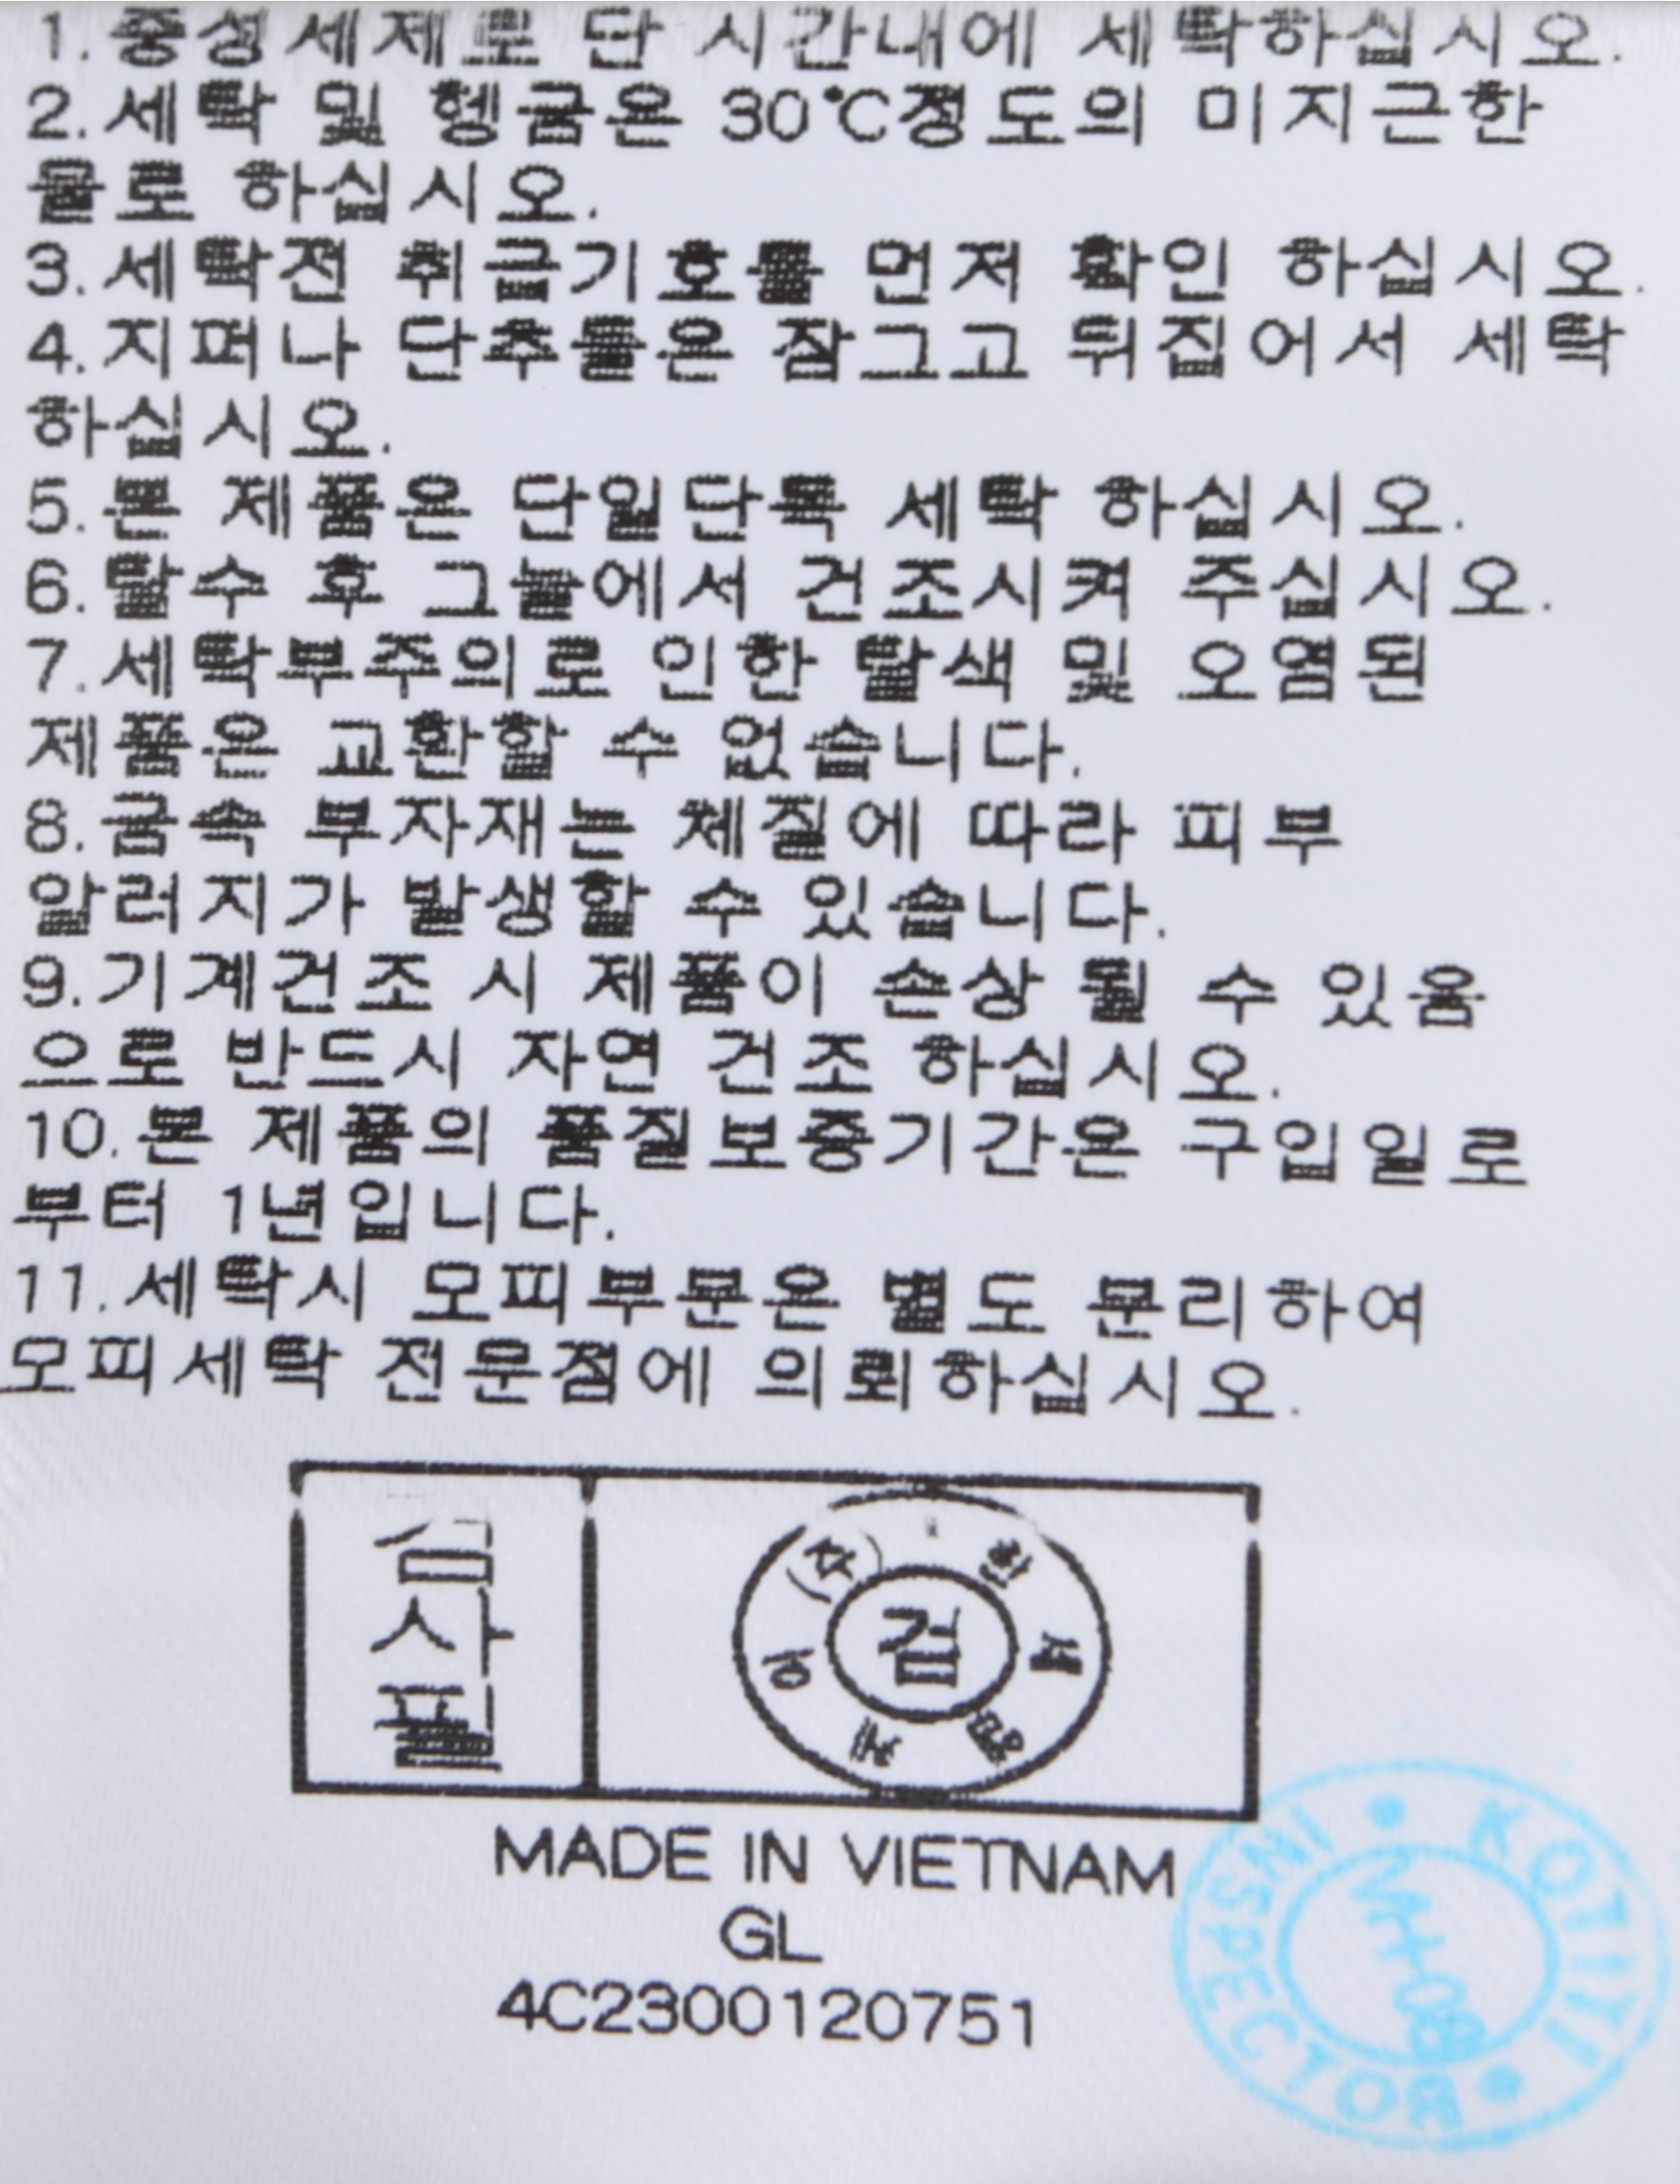 1.중성세제로 단 시간내에 세탁하십시오.
2.세탁 및 헹굼은 30℃정도의 미지근한
물로 하십시오.
3.세탁전 취급기호를 먼저 확인 하십시오.
4.지퍼나 단추들은 잠그고 뒤집어서 세탁
하십시오.
5.본 제품은 단일단독 세탁 하십시오.
6.탈수 후 그늘에서 건조시켜 주십시오.
7.세탁부주의로 인한 탈색 및 오염된
제품은 교환할 수 없습니다.
8.금속 부자재는 체질에 따라 피부
알러지가 발생할 수 있습니다.
9.기계건조 시 제품이 손상 될 수 있음
으로 반드시 자연 건조 하십시오.
10.본 제품의 품질보증기간은 구입일로
부터 1년입니다.
11.세탁시 모피부분은 별도 분리하여
모피세탁 전문점에 의뢰하십시오.
검
사
필
(주)한세엠케이
검
MADE IN VIETNAM
GL
4C2300120751
KOTITI
INSPECTOR